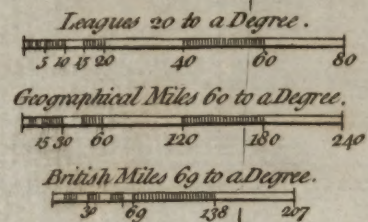 Leagues 20 to a Degree.
5 10 15 20 40 60 80
Geographical Miles 60 to a Degree.
15 30 60 120 180 240
British Miles 69 to a Degree.
30 69 138 207